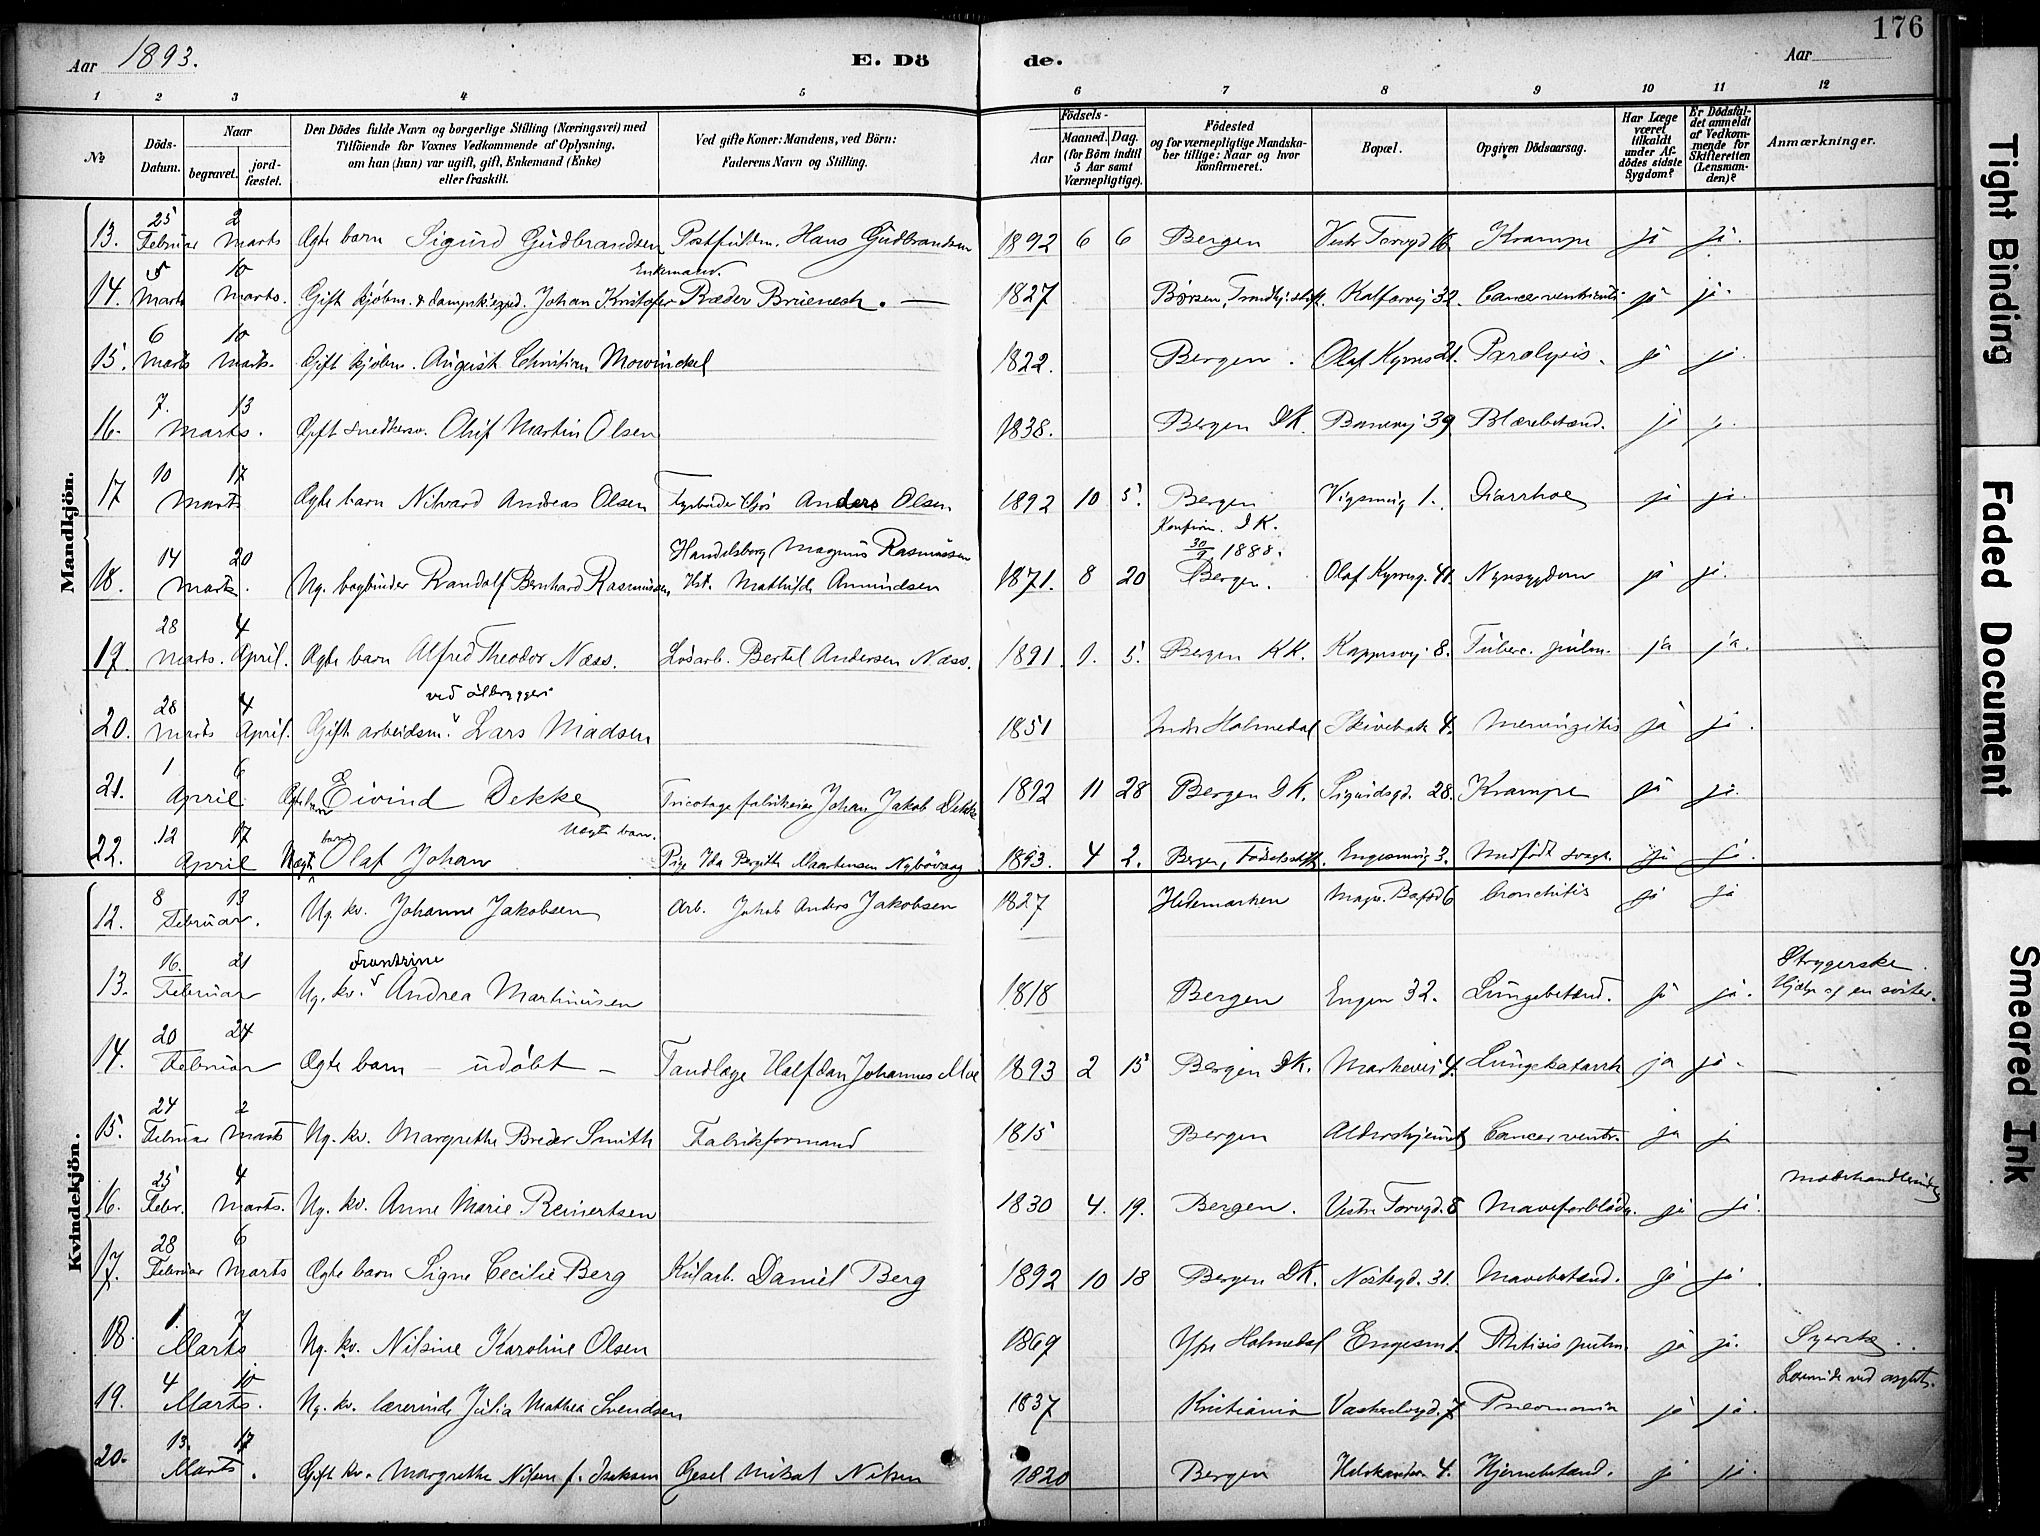 176
Aar 1893.
E. Dö
de.
Aar
1 2 3 4 5 6 7 8 9 10 11 12
№
Döds-
Datum.
Naar
begravet.
jord-
fæstet.
Den Dödes fulde Navn og borgerlige Stilling (Næringsvei) med
Tilföiende for Voxnes Vedkommende af Oplysning,
om han (hun) var ugift, gift, Enkemand (Enke)
eller fraskilt.
Ved gifte Koner: Mandens, ved Börn:
Faderens Navn og Stilling.
Födsels-
Aar
Maaned.
Dag.
(for Börn indtil
5 Aar samt
Værnepligtige).
Födested
og for værnepligtige Mandska-
ber tillige: Naar og hvor
konfirmeret.
Bopæl.
Opgiven Dödsaarsag.
Har Læge
været
tilkaldt
under Af-
dödes sidste
Sygdom?
Er Dödsfal-
det anmeldt
af Vedkom-
mende for
Skifteretten
(Lensman-
den)?
Anmærkninger.
Mandkjön.
13. 25 Februar 2 Marts Ægte barn Sigurd Gudbrandsen Postfuldm. Hans Gudbrandsen 1892 6 6 Bergen Vestr Torvgd 16 Krampe ja ja.
Enkemand.
14. 5 Marts 10 Marts. Gift kjøbm. & dampsk.exped. Johan Kristofer Ræder Bruenech. — 1827 Børsen, Trondhj. stift. Kalfarvej 32. Cancer ventriculi ja ja.
15. 6 Marts 10 Marts. Gift kjøbm. August Christian Mowinckel 1822. Bergen. Olaf Kyrres 21. Paralysis. ja ja.
16. 7. 13 Marts. Gift snedkersv. Oluf Martin Olsen 1838. Bergen DK. 39 Blærebetænd. ja j.
17 10 17 Marts Ægte barn Nikard Andreas Olsen Fyrbøder Anders Olsen 1892 10 5. Bergen 1. Diarrhoe ja ja.
Konfirm. DK.
30/9 1888.
Handelsborg Magnus Rasmussen
18. 14 20 Marts. Ug. bogbinder Randolf Bernhard Rasmussen, Hst. Mathilde Amundsen 1871. 8 20 Bergen. Olaf Kyrresg. 41. Nyresygdom ja ja.
19. 28 Marts. 4 April. Ægte barn Alfred Theodor Næss. Løsarb. Bertel Andersen Næss. 1891 9. 5. Bergen KK. Kappesvej 8. Tuberc. pulm. ja ja.
ved ølbryggeri
20. 28 Marts 4 April. Gift arbeidsm. Lars Madsen 1851 Indr Holmedal Skivebak 4. Meningitis ja ja.
21. 1 6 April. Ægte barn Eivind Dekke Tricotage fabrikeier Johan Jakob Dekke 1892 11 28 Bergen DK. Sigurdsgd. 28. Krampe ja ja.
Uægte barn.
22. 12 17 April Uægt. barn Olaf Johan Pige Ida Bergitte Martensen Nybøvaag 1893. 4 2. Bergen, Fødselsstift. 3. Medfødt svagh. ja ja.
Kvindekjön.
12. 8 13 Februar. Ug. kv. Johanne Jakobsen Arb. Jakob Anders Jakobsen 1827 Hedemarken 6 bronchitis ja ja
Frantzine
13. 16. 21 Februar Ug. kv. Andrea Martinusen 1818 Bergen Engen 32. Lungebetænd. ja ja. Strygerske.
Hjælp af en søster.
14. 20 24 Februar Ægte barn — udøbt — Tandlæge Halfdan Johannes Moe 1893 2 15 Bergen DK. Markevei 4. Lungekatarrh ja ja. —
15. 24 Februar 2 Marts Ug. kv. Margrethe Breder Smith Fabrikformand 1815 Bergen Aldershjemmet Cancer ventr. ja ja
16. 25 Febr. 4 Marts. Ug. kv. Anne Marie Reinertsen 1830 4. 19. Bergen. Vestre Torvgd. 8 Maveforblødn. ja ja.
17. 28 Februar 6 Marts Ægte barn Signe Cecilie Berg Kularb. Daniel Berg 1892 10 18 Bergen DK. Nøstegd. 31. Mavebetænd. ja ja.
18. 1. 7 Marts Ug. kv. Nilsine Karoline Olsen 1869 Ytre Holmedal 1. Phtisis pulm. ja ja. Syerske.
19. 4 10 Marts. Ug. kv. lærerinde Julia Mathea Svendsen 1837 Kristiania 7 Pneomonia ja ja. Lærerinde ved
20. 13. 17 Marts. Gift kv. Margrethe Nilsen f. Isaksen Gesel Mikal Nilsen 1820 Bergen 4. Hjernebetænd. ja ja.
Tight Binding
Faded Document
Smeared Ink